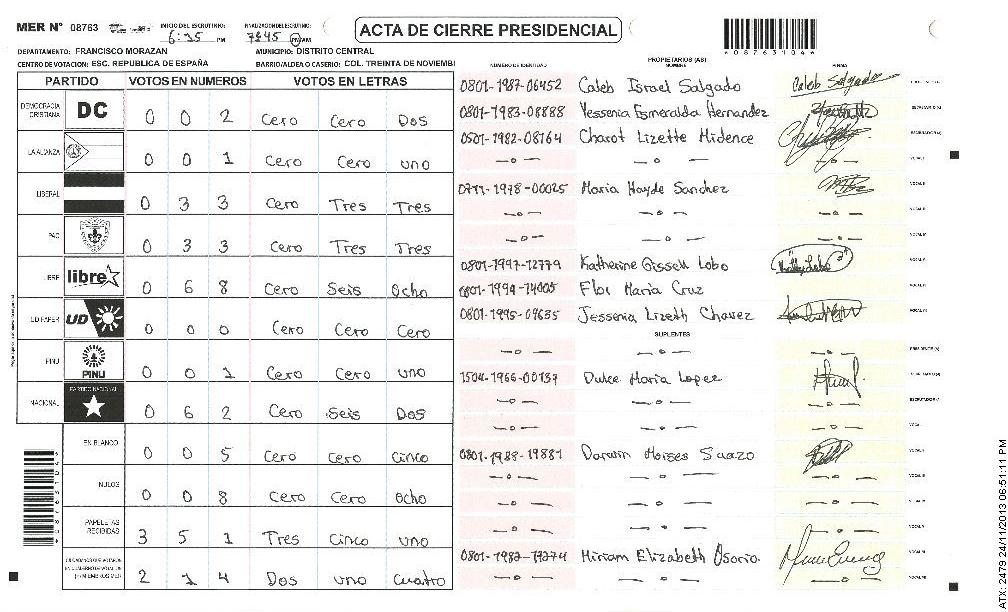 MER N° 08763
INICIO DEL ESCRUTINIO: 6:25 PM
ACTA DE CIERRE PRESIDENCIAL
08763104
DEPARTAMENTO: FRANCISCO MORAZAN
MUNICIPIO: DISTRITO CENTRAL
CENTRO DE VOTACION: ESC. REPUBLICA DE ESPAÑA
BARRIO/ALDEA O CASERIO: COL. TREINTA DE NOVIEMBI
PARTIDO VOTOS EN NUMEROS VOTOS EN LETRAS
DEMOCRACIA CRISTIANA DC 0 0 2 Cero Cero Dos
LA ALIANZA 0 0 1 Cero Cero uno
LIBERAL 0 3 3 Cero Tres Tres
PAC 0 3 3 Cero Tres Tres
LIBRE libre 0 6 8 Cero Seis Ocho
UD FAPER UD 0 0 0 Cero Cero Cero
PINU PINU 0 0 1 Cero Cero uno
NACIONAL PARTIDO NACIONAL 0 6 2 Cero Seis Dos
EN BLANCO 0 0 5 Cero Cero Cinco
NULOS 0 0 8 Cero Cero Ocho
PAPELETAS RECIBIDAS 3 5 1 Tres Cinco uno
2 1 4 Dos uno Cuatro
NUMERO DE IDENTIDAD PROPIETARIOS (AS) NOMBRE FIRMA
0801-1987-06452 Caleb Israel Salgado Caleb Salgado
0801-1983-08888 Yessenia Esmeralda Hernandez
0501-1982-08764 Charot Lizette Midence
Maria Hayde Sanchez
0801-1997-12779 Katherine Gissell Lobo
Flor Maria Cruz
0801-1995-09635 Jessenia Lizeth Chavez
SUPLENTES
1504-1966-00137 Dulce Maria Lopez
0801-1988-19881 Darwin Moises Suazo
Miriam Elizabeth Osorio.
ATX: 2479 24/11/2013 06:51:11 PM